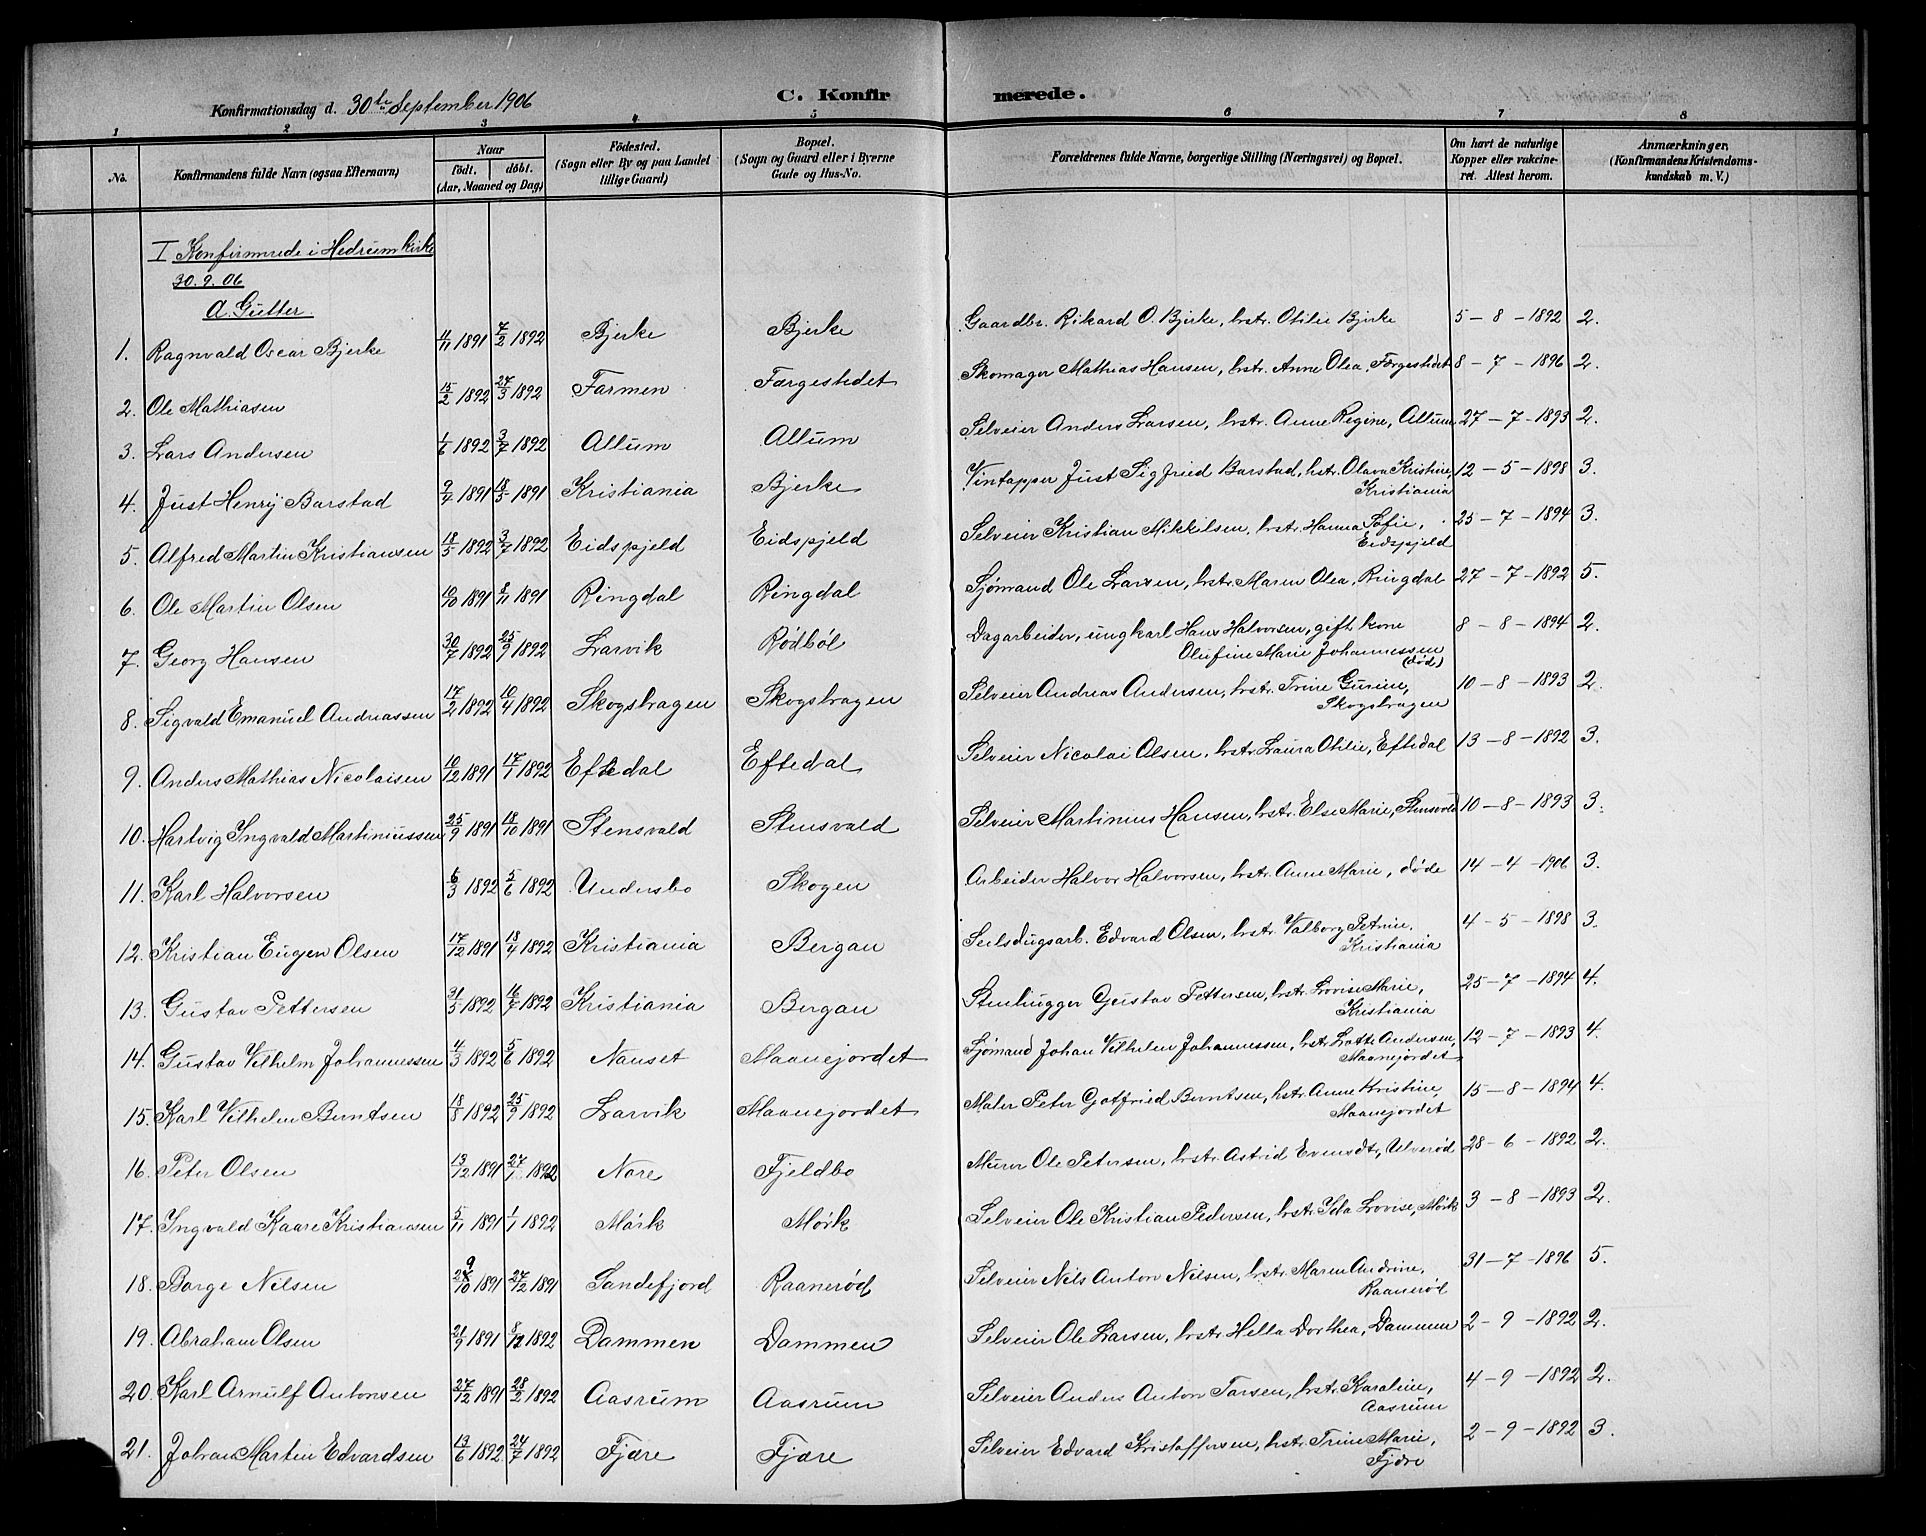 Konfirmationsdag d. 30te September 1906
C. Konfir merede.
1 2 3 4 5 6 7 8
No. Konfirmandens fulde Navn (ogsaa Efternavn) Naar födt. döbt. (Aar, Maaned og Dag) Födested. (Sogn eller By og paa Landet tillige Gaard) Bopæl. (Sogn og Gaard eller i Byerne Gade og Hus-No. Forældrenes fulde Navne, borgerlige Stilling (Næringsvei) og Bopæl. Om havt de naturlige Kopper eller vakcineret. Attest herom. Anmærkninger. (Konfirmandens Kristendomskundskab m. V.)
I Konfirmerede i Hedrum kirke
30.9.06
A. Gutter.
1. Ragnvald Oscar Bjerke 4/11 1891 7/2 1892 Bjerke Bjerke Gaardbr. Rikard O. Bjerke, hstr. Otilie Bjerke 5-8-1892 2.
2. Ole Mathiasen 15/2 1892 27/3 1892 Farmen Færgestedet Skomager Mathias Hansen, hstr. Anne Olea, Færgestedet 8-7-1896 2.
3. Lars Andersen 1/6 1892 3/7 1892 Allum Allum Selveier Anders Larsen, hstr. Anne Regine, Allum 27-7-1893 2.
4. Just Henry Barstad 1891 1891 Kristiania Bjerke Vintapper Just Sigfried Barstad, hstr. Olava Kristine,
Kristiania 12-5-1898 3.
5. Alfred Martin Kristiansen 18/5 1892 3/7 1892 Eidsfjeld Eidsfjeld Selveier Kristian Mikkelsen, hstr. Hanna Sofie,
Eidsfjeld 25-7-1894 3.
6. Ole Martin Olsen 10/10 1891 8/11 1891 Ringdal Ringdal Sjømand Ole Larsen, hstr. Maren Olea, Ringdal 27-7-1892 5.
7. Georg Hansen 30/7 1892 25/9 1892 Larvik Rødbøl Dagarbeider, ungkarl Hans Halvorsen, gift kone
Olufine Marie Johannessen
(død) 8-8-1894 2.
8. Sigvald Emanuel Andreassen 17/2 1892 10/4 1892 Skogstragen Skogstragen Selveier Andreas Andersen, hstr. Trine Gurine,
Skogstragen 10-8-1893 2.
9. Anders Mathias Nicolaisen 10/12 1891 17/1 1892 Eftedal Eftedal Selveier Nicolai Olsen, hstr. Laura Otilie, Eftedal 13-8-1892 3.
10. Hartvig Ingvald Martinussen 25/9 1891 18/10 1891 Stensvald Stensvald Selveier Martinius Hansen, hstr. Else Marie, Stensvold 10-8-1893 3.
11. Karl Halvorsen 6/3 1892 5/6 1892 Undersbo Skogen Arbeider Halvor Halvorsen, hstr. Anne Marie, døde 14-4-1906 3.
12. Kristian Eugen Olsen 17/12 1891 18/4 1892 Kristiania Bergan Seilsdugsarb. Edvard Olsen, hstr. Valborg Petrine,
Kristiania 4-5-1898 3.
13. Gustav Pettersen 31/5 1892 16/7 1892 Kristiania Bergan Stenhugger Gustav Pettersen, hstr. Lovise Marie,
Kristiania 25-7-1894 4.
14. Gustav Vilhelm Johannessen 4/3 1892 5/6 1892 Nanset Maanejordet Sjømand Johan Vilhelm Johannessen, hstr. Lotte Andersen,
Maanejordet 12-7-1893 4.
15. Karl Vilhelm Berntsen 18/8 1892 25/9 1892 Larvik Maanejordet Maler Peter Gotfried Berntsen, hstr. Anne Kristine,
Maanejordet 15-8-1894 4.
16. Peter Olsen 13/12 1891 1892 Nore Fjeldbo Murer Ole Petersen, hstr. Astrid Ulverød 28-6-1892 2.
17. Ingvald Kaare Kristiansen 5/11 1891 1/1 1892 Mørk Mørk Selveier Ole Kristian Pedersen, hstr. Ida Lovise, Mørk 3-8-1893 2.
18. Borge Nilsen 1891 27/12 1891 Sandefjord Raanerød Selveier Nils Anton Nilsen, hstr. Maren Andrine,
Raanerød 31-7-1896 5.
19. Abraham Olsen 21/9 1891 1892 Dammen Dammen Selveier Ole Larsen, hstr. Hella Dorthea, Dammen 2-9-1892 2.
20. Karl Arnulf Antonsen 27/12 1891 28/2 1892 Aasrum Aasrum Selveier Anders Anton Tarsen, hstr. Karoline,
Aasrum 4-9-1892 2.
21. Johan Martin Edvardsen 13/6 1892 24/7 1892 Fjære Fjære Selveier Edvard Kristoffersen, hstr. Trine Marie,
Fjære 2-9-1892 3.